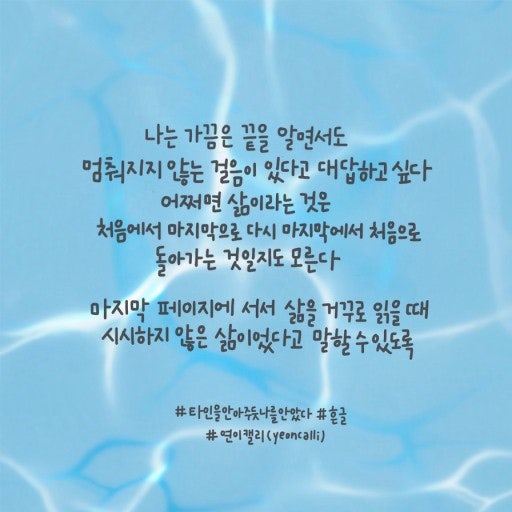 나는 가끔은 끝을 알면서도
멈춰지지 않는 걸음이 있다고 대답하고 싶다
어쩌면 삶이라는 것은
처음에서 마지막으로 다시 마지막에서 처음으로
돌아가는 것일지도 모른다
마지막 페이지에 서서 삶을 거꾸로 읽을 때
시시하지 않은 삶이었다고 말할 수 있도록
#타인을안아주듯나를안았다 #흔글
#연이캘리(yeoncalli)